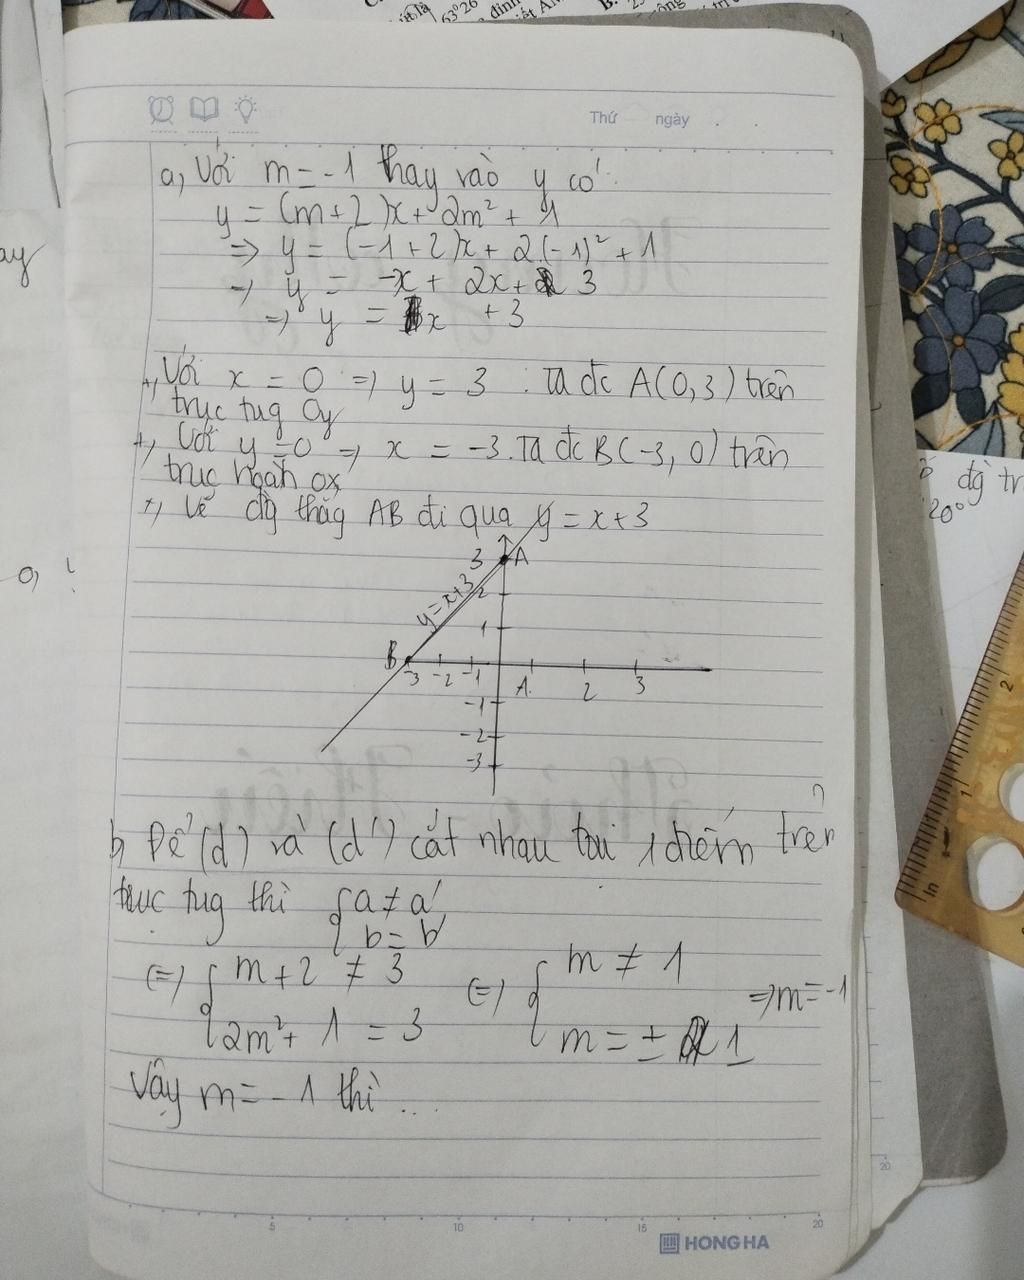 Thứ ngày
a, Với m = -1 thay vào y có:
y = (m+2)x + 2m² + 1
=> y = (-1+2)x + 2.(-1)² + 1
=> y = -x + 2x + 3
=> y = x + 3
+, Với x = 0 => y = 3 : Ta đc A(0,3) trên
trục tug Oy
+, Với y = 0 => x = -3. Ta đc B(-3, 0) trên
trục ngah ox
+, Vẽ đg thăg AB đi qua y = x+3
3 A
y = x+3 2
1
B -3 -2 -1 1 2 3
-1
-2
-3
b, Để (d) và (d') cắt nhau tại 1 điểm trên
trục tug thì { a ≠ a'
b = b'
(=) { m+2 ≠ 3 (=) { m ≠ 1 => m = -1
2m² + 1 = 3 m = ± 1
Vậy m = -1 thì ...
ay
0, !
đg tr
20°
63°26
5 10 15 20
HONG HA
20
In 1 2